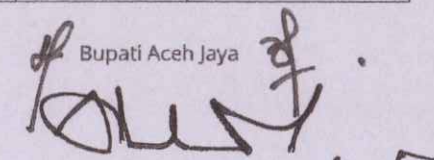 Bupati Aceh Jaya